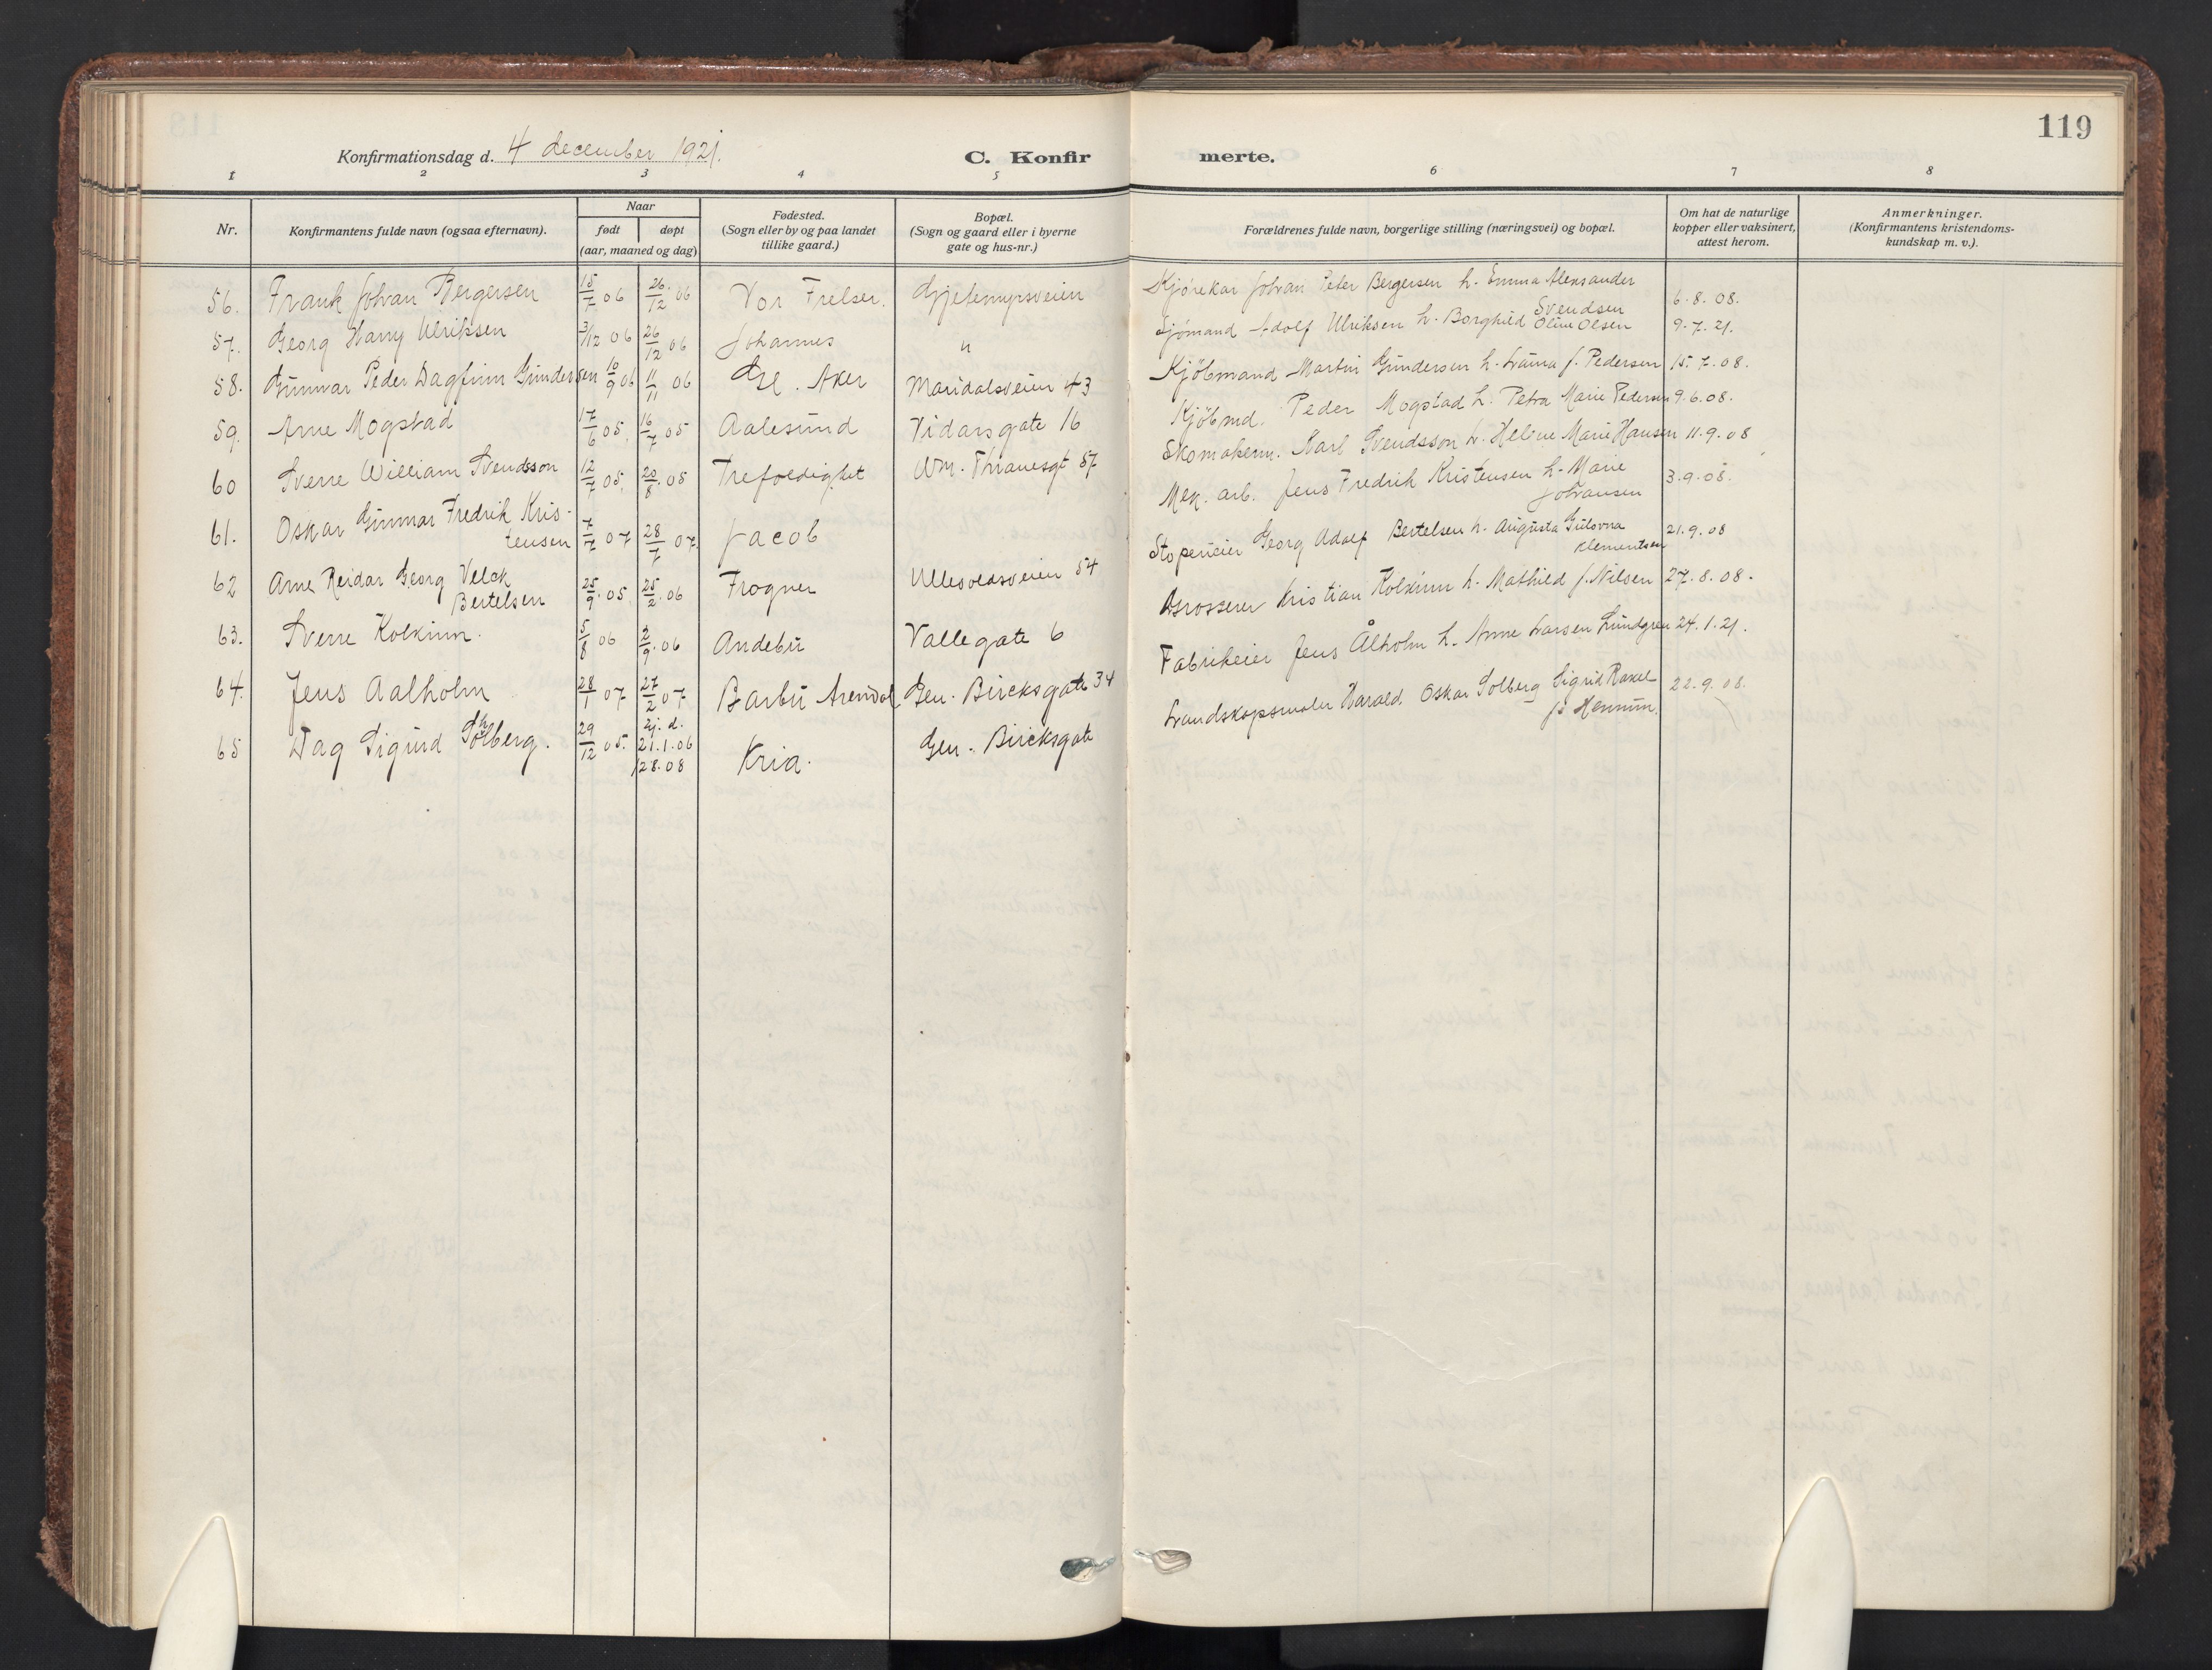 119
Konfirmationsdag d. 4 december 1921.
C. Konfirmerte.
1 2 3 4 5 6 7 8
Nr.
Konfirmantens fulde navn (ogsaa efternavn).
Naar
født døpt
(aar, maaned og dag)
Fødested.
(Sogn eller by og paa landet
tillike gaard.)
Bopæl.
(Sogn og gaard eller i byerne
gate og hus-nr.)
Forældrenes fulde navn, borgerlige stilling (næringsvei) og bopæl.
Om hat de naturlige
kopper eller vaksinert,
attest herom.
Anmerkninger.
(Konfirmantens kristendoms-
kundskap m. v.).
56. Frank Johan Bergersen 15/7 06 26/12 06 Vor Frelser. Gjetemyrsveien Kjørekar Johan Peter Bergersen h. Emma Aleksander
Svendsen 6.8.08.
57. Georg Harry Ulriksen 3/12 06 26/12 06 Johannes " Sjømand Adolf Ulriksen h. Borghild Oline Olsen 9.7.21.
58. Gunnar Peder Dagfinn Gundersen 10/9 06 11/11 06 Gl. Aker Maridalsveien 43 Kjöbmand Martin Gundersen h. Laura f. Pedersen 15.7.08.
59. Arne Mogstad 17/6 05. 16/7 05 Aalesund Vidarsgate 16 Kjöbmd. Peder Mogstad h. Petra Marie Pedersen 9.6.08.
60 Sverre William Svendsson 12/7 05. 20/8. 05 Trefoldighet Wm. Thranesgt 57 Skomakerm. Karl Svendsson h. Heline Marie Hansen 11.9.08
61. Oskar Gunnar Fredrik Kris-
tensen 7/7 07 28/7 07. Jacob Mek. arb. Jens Fredrik Kristensen h. Marie
Johansen 3.9.08.
62 Arne Reidar Georg Velck
Bertelsen 25/9. 05 25/2. 06 Frogner Ullevoldsveien 54 Stoperieier Georg Adolf Bertelsen h. Augusta Gulovna
Klementsen 21.9.08
63. Sverre Kolkinn. 5/8 06 2/9. 06 Andebu Vallegate 6 Grosserer Kristian Kolkinn h. Mathild f. Nilsen 27.8.08.
64. Jens Aalholm 28/1 07 27/2 07 Barbu Arendal Gen. Bircksgate 34 Fabrikeier Jens Ålholm h. Anne Larsen Lundgren 24.1.21.
65 Dag Sigurd Solberg. 29/12 05. Hj. d.
21.1.06
28.08 Kria. Gen. Bircksgate Landskapsmaler Harald Oskar Solberg Sigrid Rakel
22.9.08.